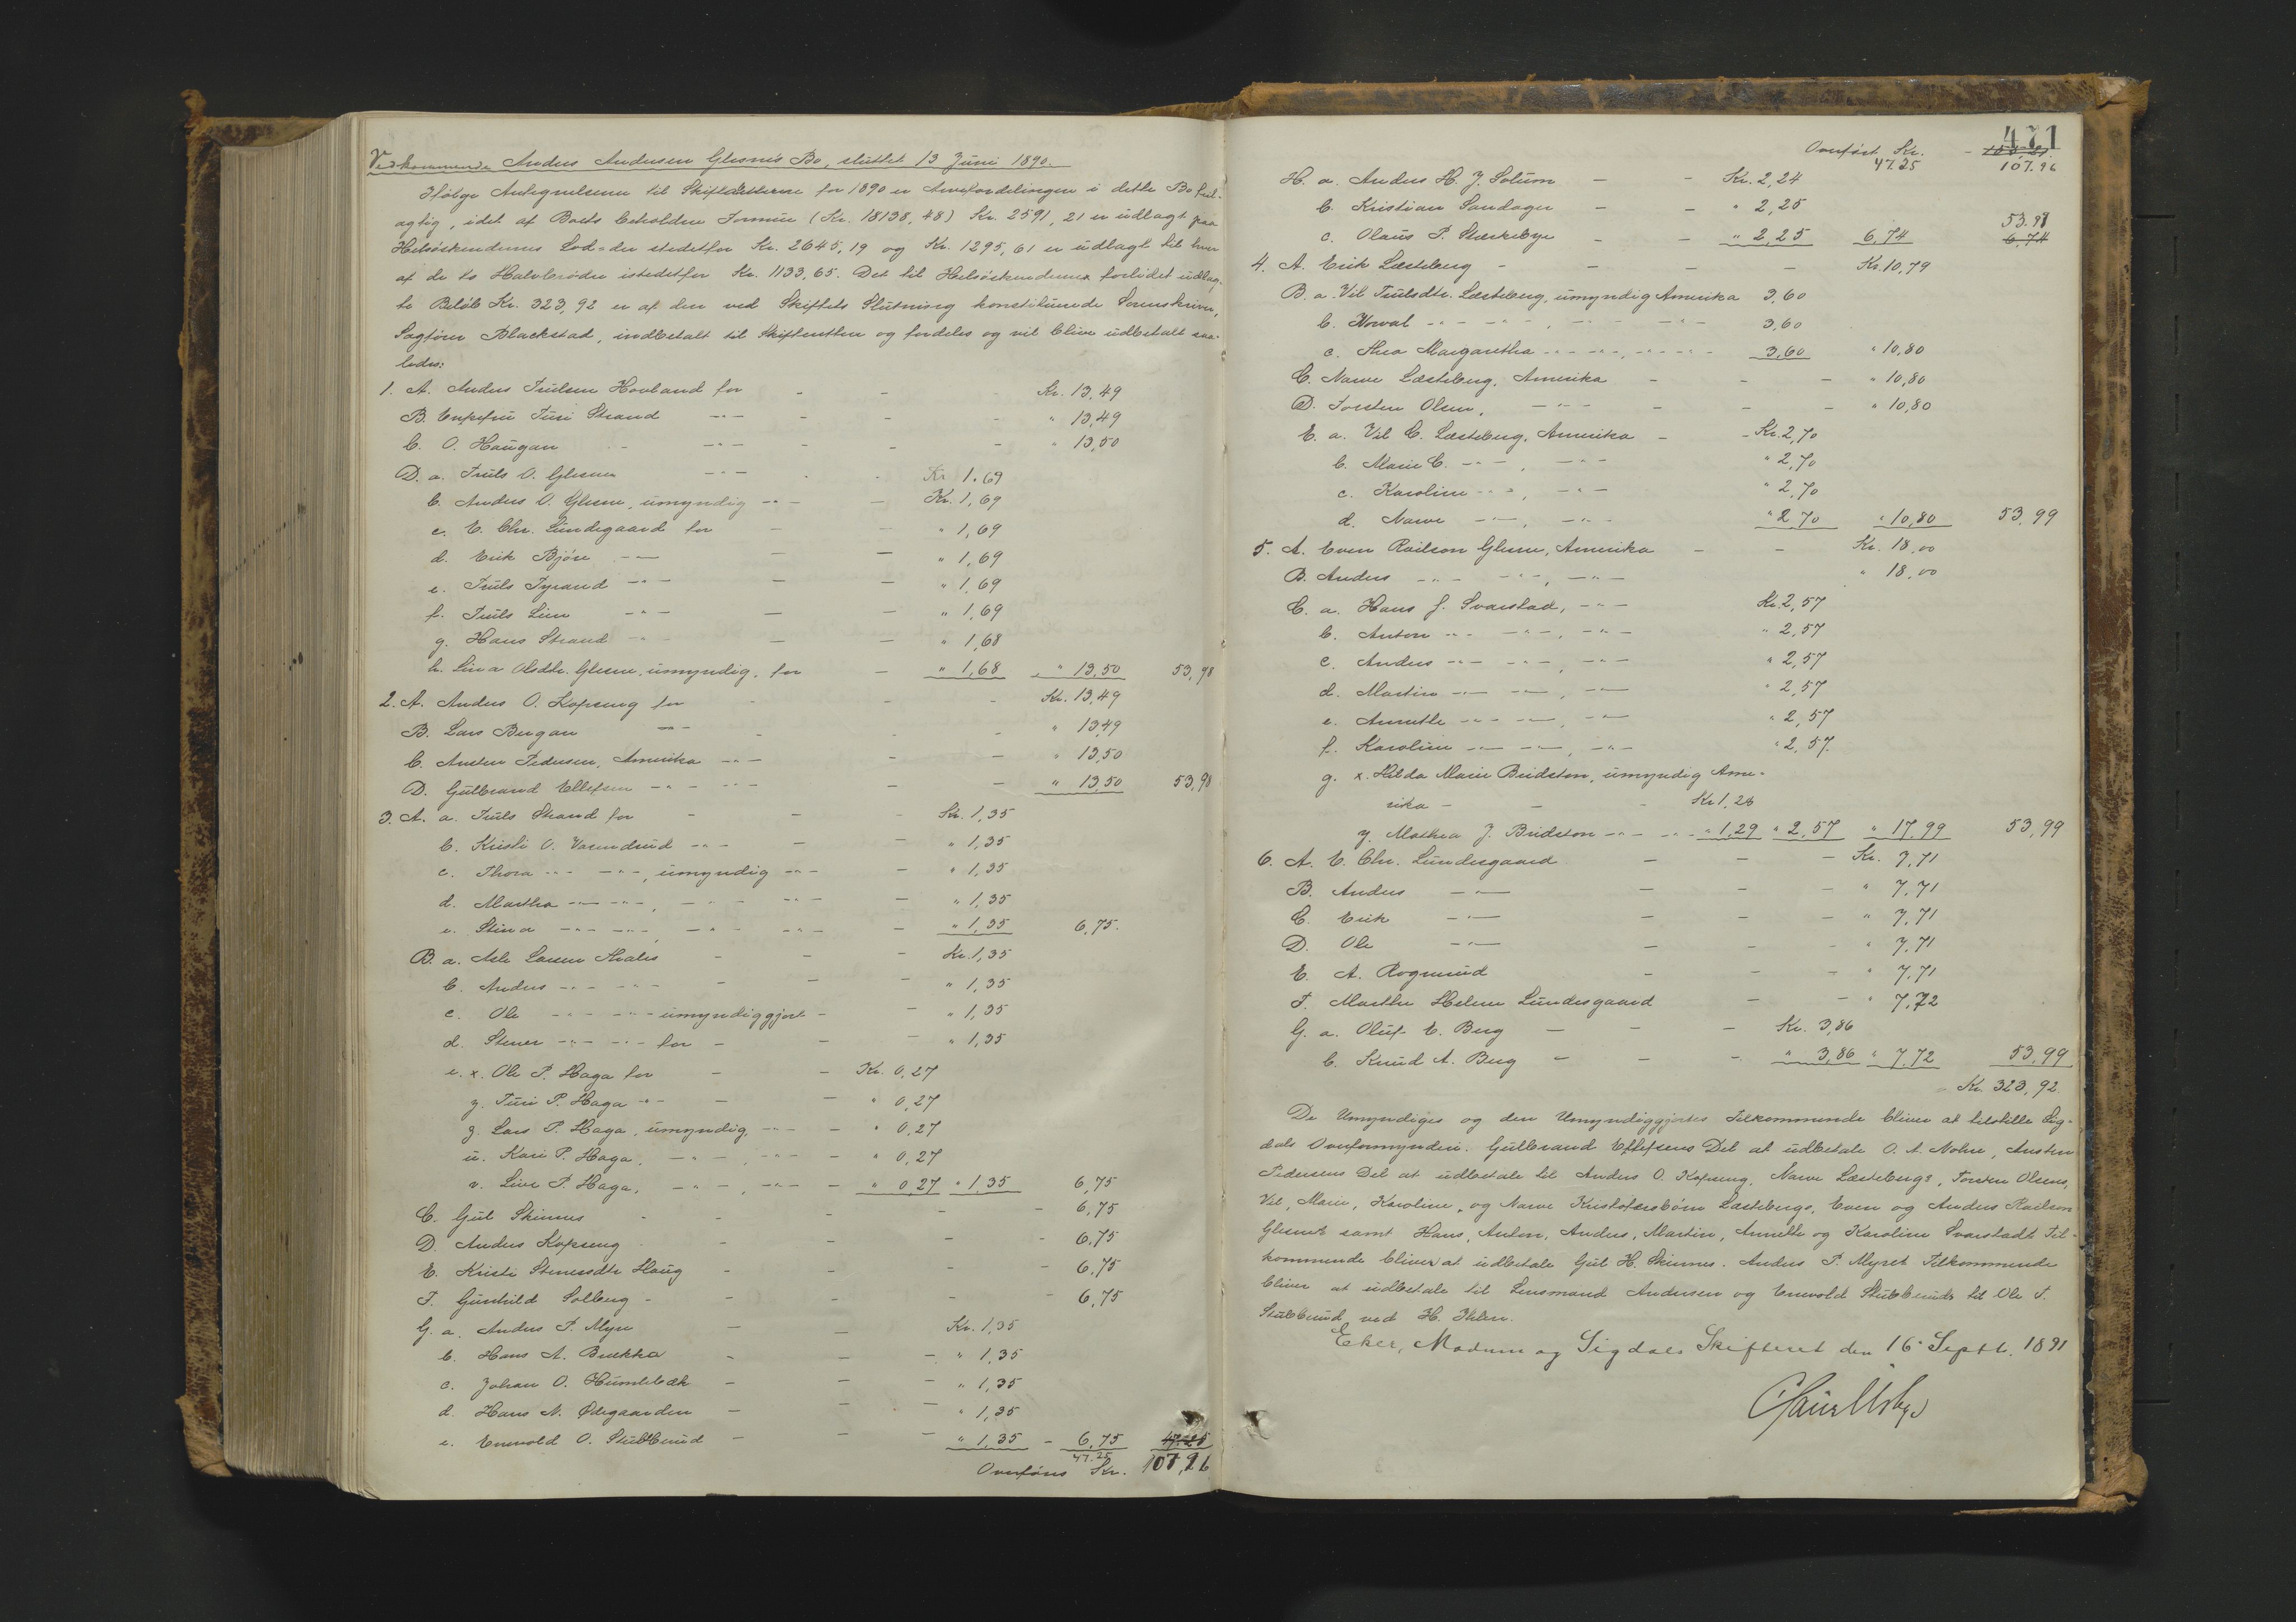 Vedkommende Anders Andersen Glesnes Bo, sluttet 13 Juni 1890.
Ifølge Antegnelserne til Skifteditterne for 1890 er Arvefordelingen i dette Bo feil-
agtig, idet af Boets beholdne Formue (Kr. 18138,48) Kr. 2591,21 er udlagt paa
Helsøskendernes Lod-der istedetfor Kr. 2645,19 og Kr. 1295,61 er udlagt til hver
af de to Halvbrødre istedetfor Kr. 1133,65. Det til Helsøskenderne forlidet udlag-
te Beløb Kr. 323,92 er af den ved Skiftets Slutning konstituerede Sorenskriver,
Sagfører Blackstad, indbetalt til Skifteretten og fordeles og vil blive udbetalt saa-
ledes:
1. A. Anders Trulsen Hovland for - - Kr. 13,49
B. Enkefru Turi Strand -"- - - " 13,49
C. O. Haugan -"- - - " 13,50
D. a. Truls O. Glesne -"- - Kr 1.69
b. Anders O. Glesne, umyndig -"- - Kr. 1,69
c. E. Chr. Lundesgaard for - - " 1,69
d. Erik Bjøre -"- - - " 1,69
e. Truls Tyrand -"- - - " 1,69
f. Truls Lien -"- - - " 1,69
g. Hans Strand -"- - - " 1,68
h. Lina Olsdtr. Glesne, umyndig, for - " 1,68 " 13,50 53,98
2. A. Anders O. Kopseng for - - - Kr. 13,49
B. Lars Bergan -"- - - " 13,49
C. Austen Pedersen, Amerika -"- - - " 13,50
D. Gulbrand Ellefsen -"- -"- - - " 13,50 53,98
3. A. a. Truls Strand for - - Kr. 1,35
b. Kristi O. Vasendrud -"- - - " 1,35
c. Thora -"- -"-, umyndig -"- - " 1,35
d. Martha -"- -"-, -"- -"- - " 1,35
e. Stina -"- -"-, -"- -"- - " 1,35 6,75.
B. a. Asle Larsen Skalis - - - Kr. 1,35
b. Anders -"- -"- - - - " 1,35
c. Ole -"- -"- umyndiggjort - - " 1,35
d. Stener -"- -"- for - - - " 1,35
e. x. Ole P. Haga for - - Kr. 0,27
y. Turi P. Haga -"- - - " 0,27
z. Lars P. Haga, umyndig, -"- - " 0,27
u. Kari P. Haga, -"-, -"- - " 0,27
v. Live P. Haga, -"-, -"- - " 0,27 " 1,35 6,75
C. Gul Skinnes - - - - - 6,75
D. Anders Kopseng - - - - 6,75
E. Kristi Stenersdtr Haug - - - - 6,75
F. Gunhild Solberg - - - - - 6,75
G. a. Anders P. Myre - - Kr. 1,35
b. Hans A. Brekka - - - " 1,35
c. Johan O. Humlebæk - - - " 1,35
d. Hans N. Ødegaarden - - - " 1,35
e. Enevold O. Stubberud - - - " 1,35 - 6,75 47.25
47.25
Overføres Kr. 107,96
471
Overført Kr. - 
47.25 107.96
H. a. Anders H. J. Solum - - Kr. 2,24
b. Kristian Sandager - - " 2,25
c. Olaus P. Stærkebye - - " 2,25 6,74 53.98
6,74
4. A. Erik Læsteberg - - - - Kr. 10,79
B. a. Vil Trulsdtr. Læsteberg, umyndig Amerika 3,60
b. Norval -"- -"-, -"- -"- 3,60
c. Thea Margaretha -"- -"-, -"- -"- 3,60 " 10,80
C. Narve Læsteberg, Amerika - - - " 10,80
D. Torsten Olsen, -"- - - - " 10,80
E. a. Vil C. Læsteberg, Amerika - - Kr. 2,70
b. Marie C. -"-, -"- " 2,70
c. Karoline -"-, -"- " 2,70
d. Narve -"-, -"- " 2,70 " 10,80 53,99
5. A. Even Railson Glesne, Amerika - - Kr. 18,00
B. Anders -"- -"-, -"- " 18,00
C. a. Hans J. Svarstad, -"- Kr. 2,57
b. Anton -"- -"-, -"- " 2,57
c. Anders -"- -"-, -"- " 2,57
d. Martin -"- -"-, -"- " 2,57
e. Annette -"- -"-, -"- " 2,57
f. Karoline -"- -"-, -"- " 2,57.
g. x. Hilda Marie Bridston, umyndig Ame-
rika - - - Kr 1,28
y. Mathea J. Bridston -"- -"- " 1,29 " 2,57 " 17,99 53,99
6. A. E. Chr. Lundesgaard - - - Kr. 7,71
B. Anders -"- - - - " 7,71
C. Erik -"- - - - " 7,71
D. Ole -"- - - - " 7,71
E. A. Rogmund - - - " 7,71
F. Marthe Helene Lundesgaard - - " 7,72
G. a. Oluf E. Berg - - - Kr. 3,86
b. Knud A. Berg - - - " 3,86 " 7,72 53,99
Kr. 323,92
De Umyndiges og den Umyndiggjortes Tilkommende bliver at tilstille Sig-
dals Overformynderi. Gulbrand Ellefsens Del at udbetale O. A. Nohre, Austen
Pedersens Del at udbetale til Anders O. Kopseng, Narve Læstebergs, Torsten Olsens,
Vil, Marie, Karoline, og Narve Kristofersbørn Læstebergs, Even og Anders Railson
Glesnes samt Hans, Anton, Anders, Martin, Annette og Karoline Svarstads Til-
kommende bliver at udbetale Gul H. Skinnes. Anders P. Myres Tilkommende
bliver at udbetale til Lensmand Andersen og Enevold Stubberuds til Ole T.
Stubberud ved H. Ihlen.
Eker, Modum og Sigdals Skifteret den 16 Septb. 1891